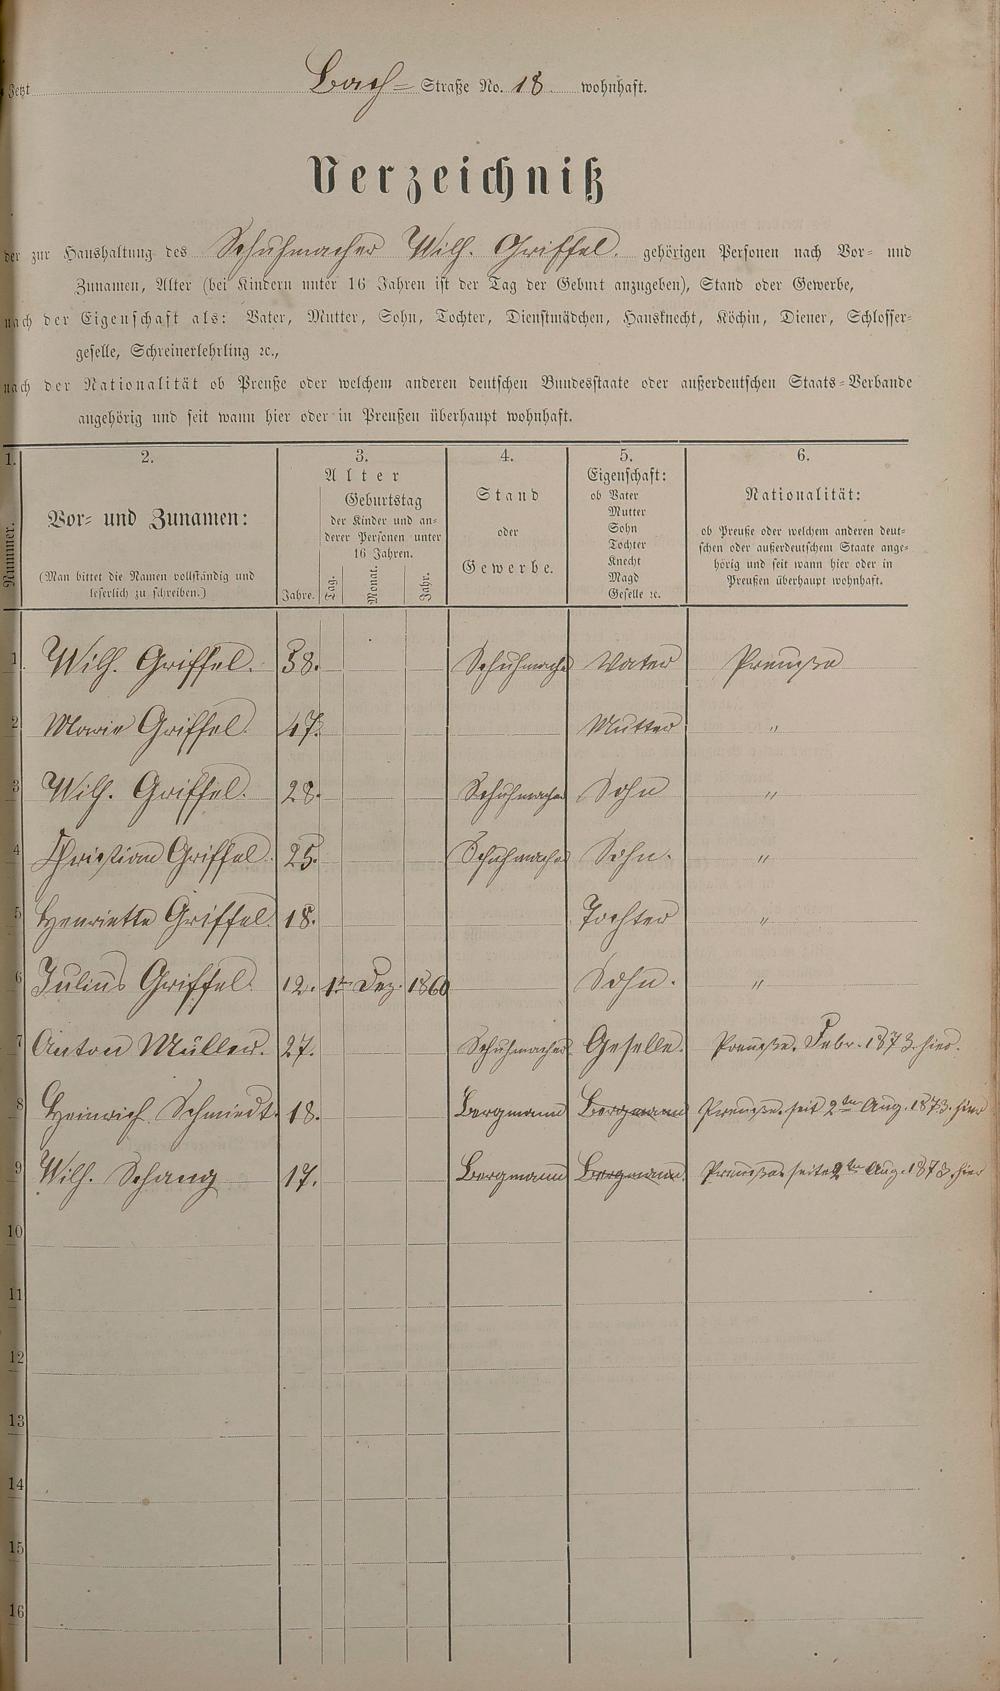 Jetzt Bach= Straße No. 18 wohnhaft.
Verzeichniß
der zur Haushaltung des Schuhmacher Wilh. Griffel. gehörigen Personen nach Vor- und
Zunamen, Alter (bei Kindern unter 16 Jahren ist der Tag der Geburt anzugeben), Stand oder Gewerbe,
nach der Eigenschaft als: Vater, Mutter, Sohn, Tochter, Dienstmädchen, Hausknecht, Köchin, Diener, Schlosser-
geselle, Schreinerlehrling ꝛc.,
nach der Nationalität ob Preuße oder welchem anderen deutschen Bundesstaate oder außerdeutschen Staats-Verbande
angehörig und seit wann hier oder in Preußen überhaupt wohnhaft.
1. 2. 3. 4. 5. 6.
Nummer.
Vor- und Zunamen:
(Man bittet die Namen vollständig und
leserlich zu schreiben.)
Alter
Jahre.
Geburtstag
der Kinder und an-
derer Personen unter
16 Jahren.
Tag. Monat. Jahr.
Stand
oder
Gewerbe.
Eigenschaft:
ob Vater
Mutter
Sohn
Tochter
Knecht
Magd
Geselle ꝛc.
Nationalität:
ob Preuße oder welchem anderen deut-
schen oder außerdeutschem Staate ange-
hörig und seit wann hier oder in
Preußen überhaupt wohnhaft.
1 Wilh. Griffel. 58. Schuhmacher Vater Preuße
2 Marie Griffel. 47. Mutter "
3 Wilh. Griffel. 28. Schuhmacher Sohn "
4 Christian Griffel. 25. Schuhmacher Sohn. "
5 Henriette Griffel. 18. Tochter "
6 Julius Griffel. 12. 1t Dez. 1860 Sohn. "
7 Anton Müller. 27. Schuhmacher Geselle. Preuße. Febr. 1873. hier.
8 Heinrich Schmiedt. 18. Bergmann Bergmann Preuße. seit 2ten Aug. 1873. hier
9 Wilh. Schang 17. Bergmann Bergmann. Preuße. seit 2ten Aug. 1873. hier
10
11
12
13
14
15
16